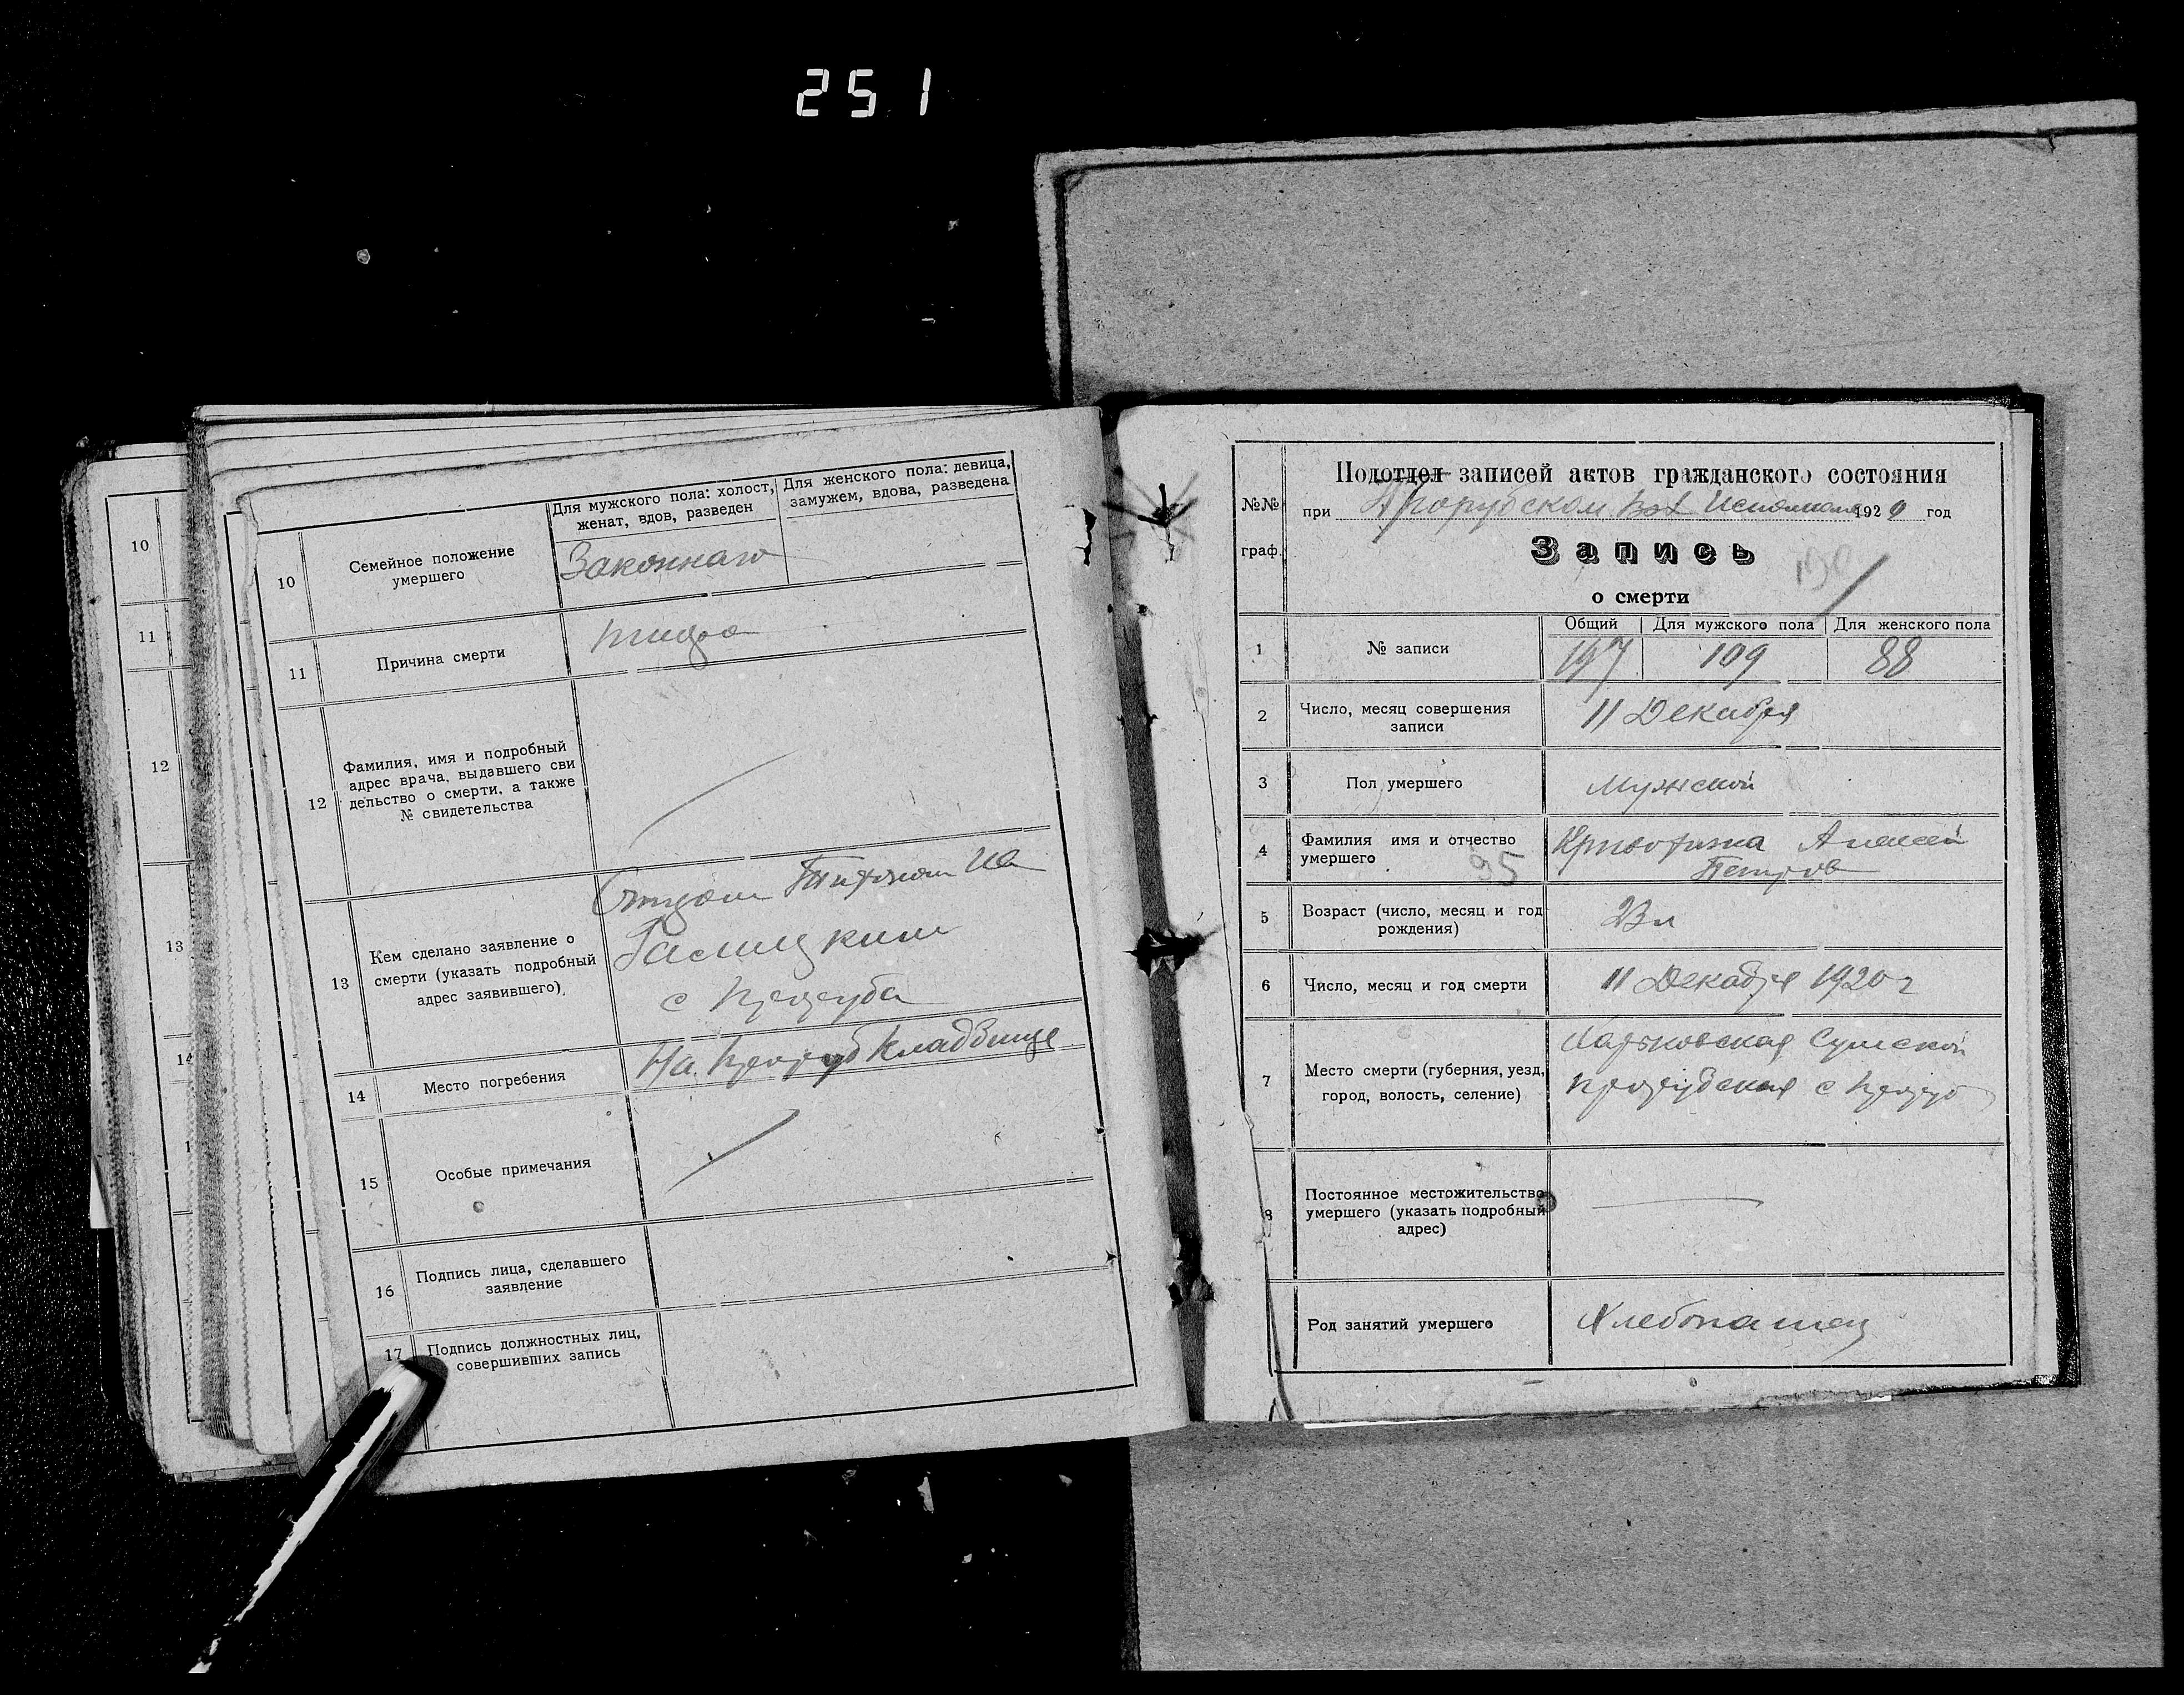 251
10
11
12
13
14
Для мужского пола: холост, женат, вдов, разведен
Для женского пола: девица, замужем, вдова, разведена
10
Семейное положение
умершего
Законнаго
11
Причина смерти
12
Фамилия, имя и подробный
адрес врача, выдавшего сви
дельство о смерти, а также
№ свидетельства
13
Кем сделано заявление о
смерти (указать подробный
адрес заявившего)
Отцом
Галицким
с
14
Место погребения
На Кладбище
15
Особые примечания
16
Подпись лица, сделавшего
заявление
17
Подпись должностных лиц,
совершивших запись
№№
граф.
Подотдел записей актов гражданского состояния
при Вол Исполкоме 1920 год
Запись
о смерти
1
№ записи
Общий
Для мужского пола
Для женского пола
197
109
88
2
Число, месяц совершения
записи
11 Декабря
3
Пол умершего
Мужской
4
Фамилия имя и отчество
умершего
95
Алексей
Петров
5
Возраст (число, месяц и год
рождения)
23 л
6
Число, месяц и год смерти
11 Декабря 1920 г
7
Место смерти (губерния, уезд,
город, волость, селение)
Харьковская Сумской
с
8
Постоянное местожительство
умершего (указать подробный
адрес)
Род занятий умершего
Хлебопашец